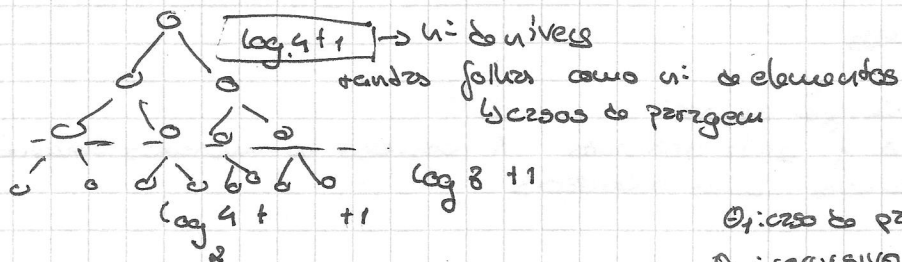 log 4+1 → nº de níveis
tantas folhas como nº de elementos
↳ casos de paragem
log 8 +1
log₂ 4 + +1
Θ₁: caso de pa